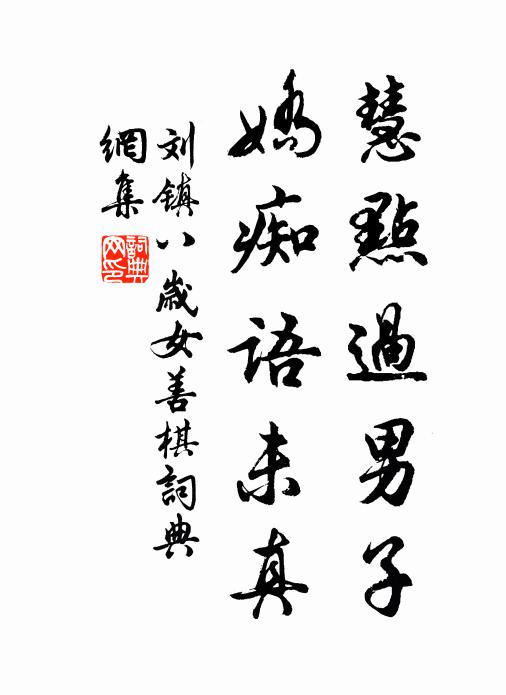 慧點過男子
嬌痴語未真
刘鎮八歲女善棋詞典
網集
詞典網印